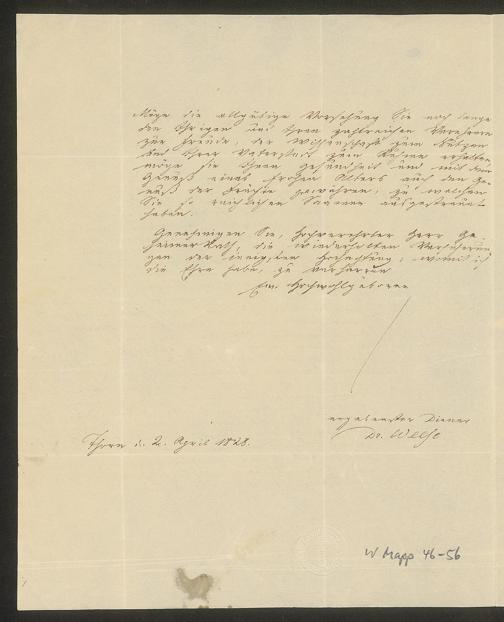 Möge die allgütige Vorsehung Sie noch lange
den Ihrigen und Ihren zahlreichen Verehrern
zur Freude, der Wissenschaft zum Nutzen
und Ihrer Vaterstadt zum Ruhme erhalten,
möge sie Ihnen Gesundheit und mit dem
Genuß eines frohen Alters auch den Ge-
nuß der Früchte gewähren, zu welchen
Sie so reichlichen Saamen ausgestreut
haben.
Genehmigen Sie, Hochverehrter Herr Ge-
heimer Rath, die wiederholten Versicherun
gen der innigsten Hochachtung, womit ich
die Ehre habe, zu verharren
Ew. Hochwohlgeboren
ergebenster Diener
Dr. Weese
Thorn d. 2. April 1828.
W Mapp 46-56